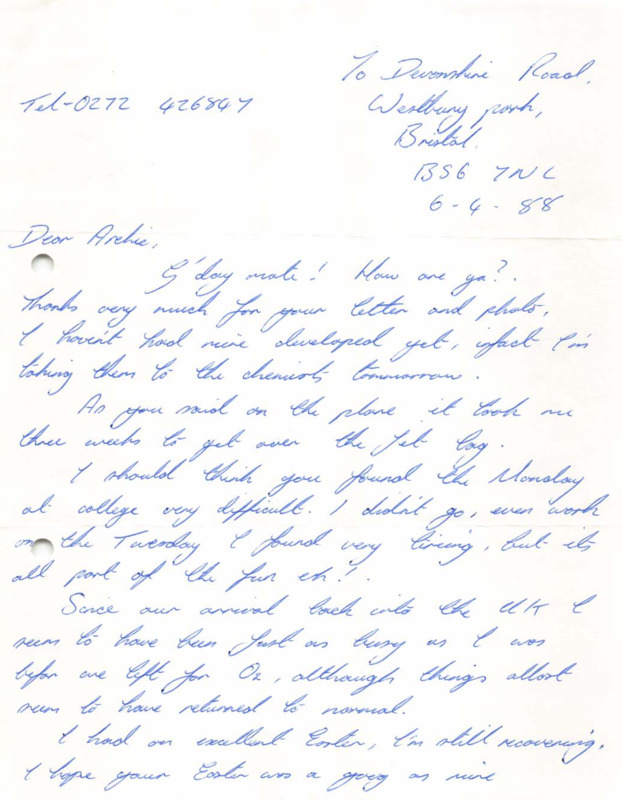 70 Devonshire Roaad,
Tel-0272 426847
Westbury park,
Bristol.
BS6 7NL
6-4-88
Dear Archie,
G'day mate! How are ya?.
Thanks very much for your letter and photo,
I havent had mine developed yet, infact I'm
taking them to the chemists tommorrow.
As you said on the plane it took me
three weeks to get over the Jet lag.
I should think you found the Monday
at college very difficult. I didn't go, even work
on the Tuesday I found very tireing, but its
all part of the fun eh!.
Since our arrival back into the UK I
seem to have been just as busy as I was
befor we left for Oz, although things allost
seem to have returned to normal.
I had an excellent Easter, I'm still recovering.
I hope your Easter was a good as mine